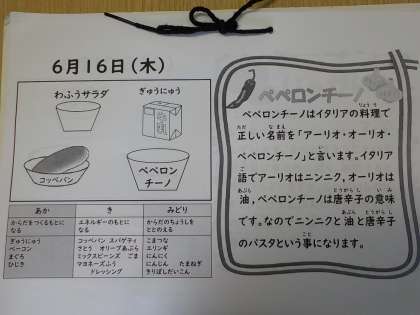 6月16日(木)
わふうサラダ
ぎゅうにゅう
コッペパン
ペペロン
チーノ
あか
き
みどり
からだをつくるもとに
なる
エネルギーのもとに
なる
からだのちょうしを
ととのえる
ぎゅうにゅう
ベーコン
まぐろ
ひじき
コッペパン スパゲティ
さとう オリーブあぶら
ミックスビーンズ ごま
マヨネーズふう
ドレッシング
こまつな
エリンギ
にんにく
にんじん たまねぎ
きりぼしだいこん
ペペロンチーノ
ペペロンチーノはイタリアの料理で
正しい名前を「アーリオ・オーリオ・
ペペロンチーノ」と言います。イタリア
語でアーリオはニンニク、オーリオは
油、ペペロンチーノは唐辛子の意味
です。なのでニンニクと油と唐辛子
のパスタという事になります。